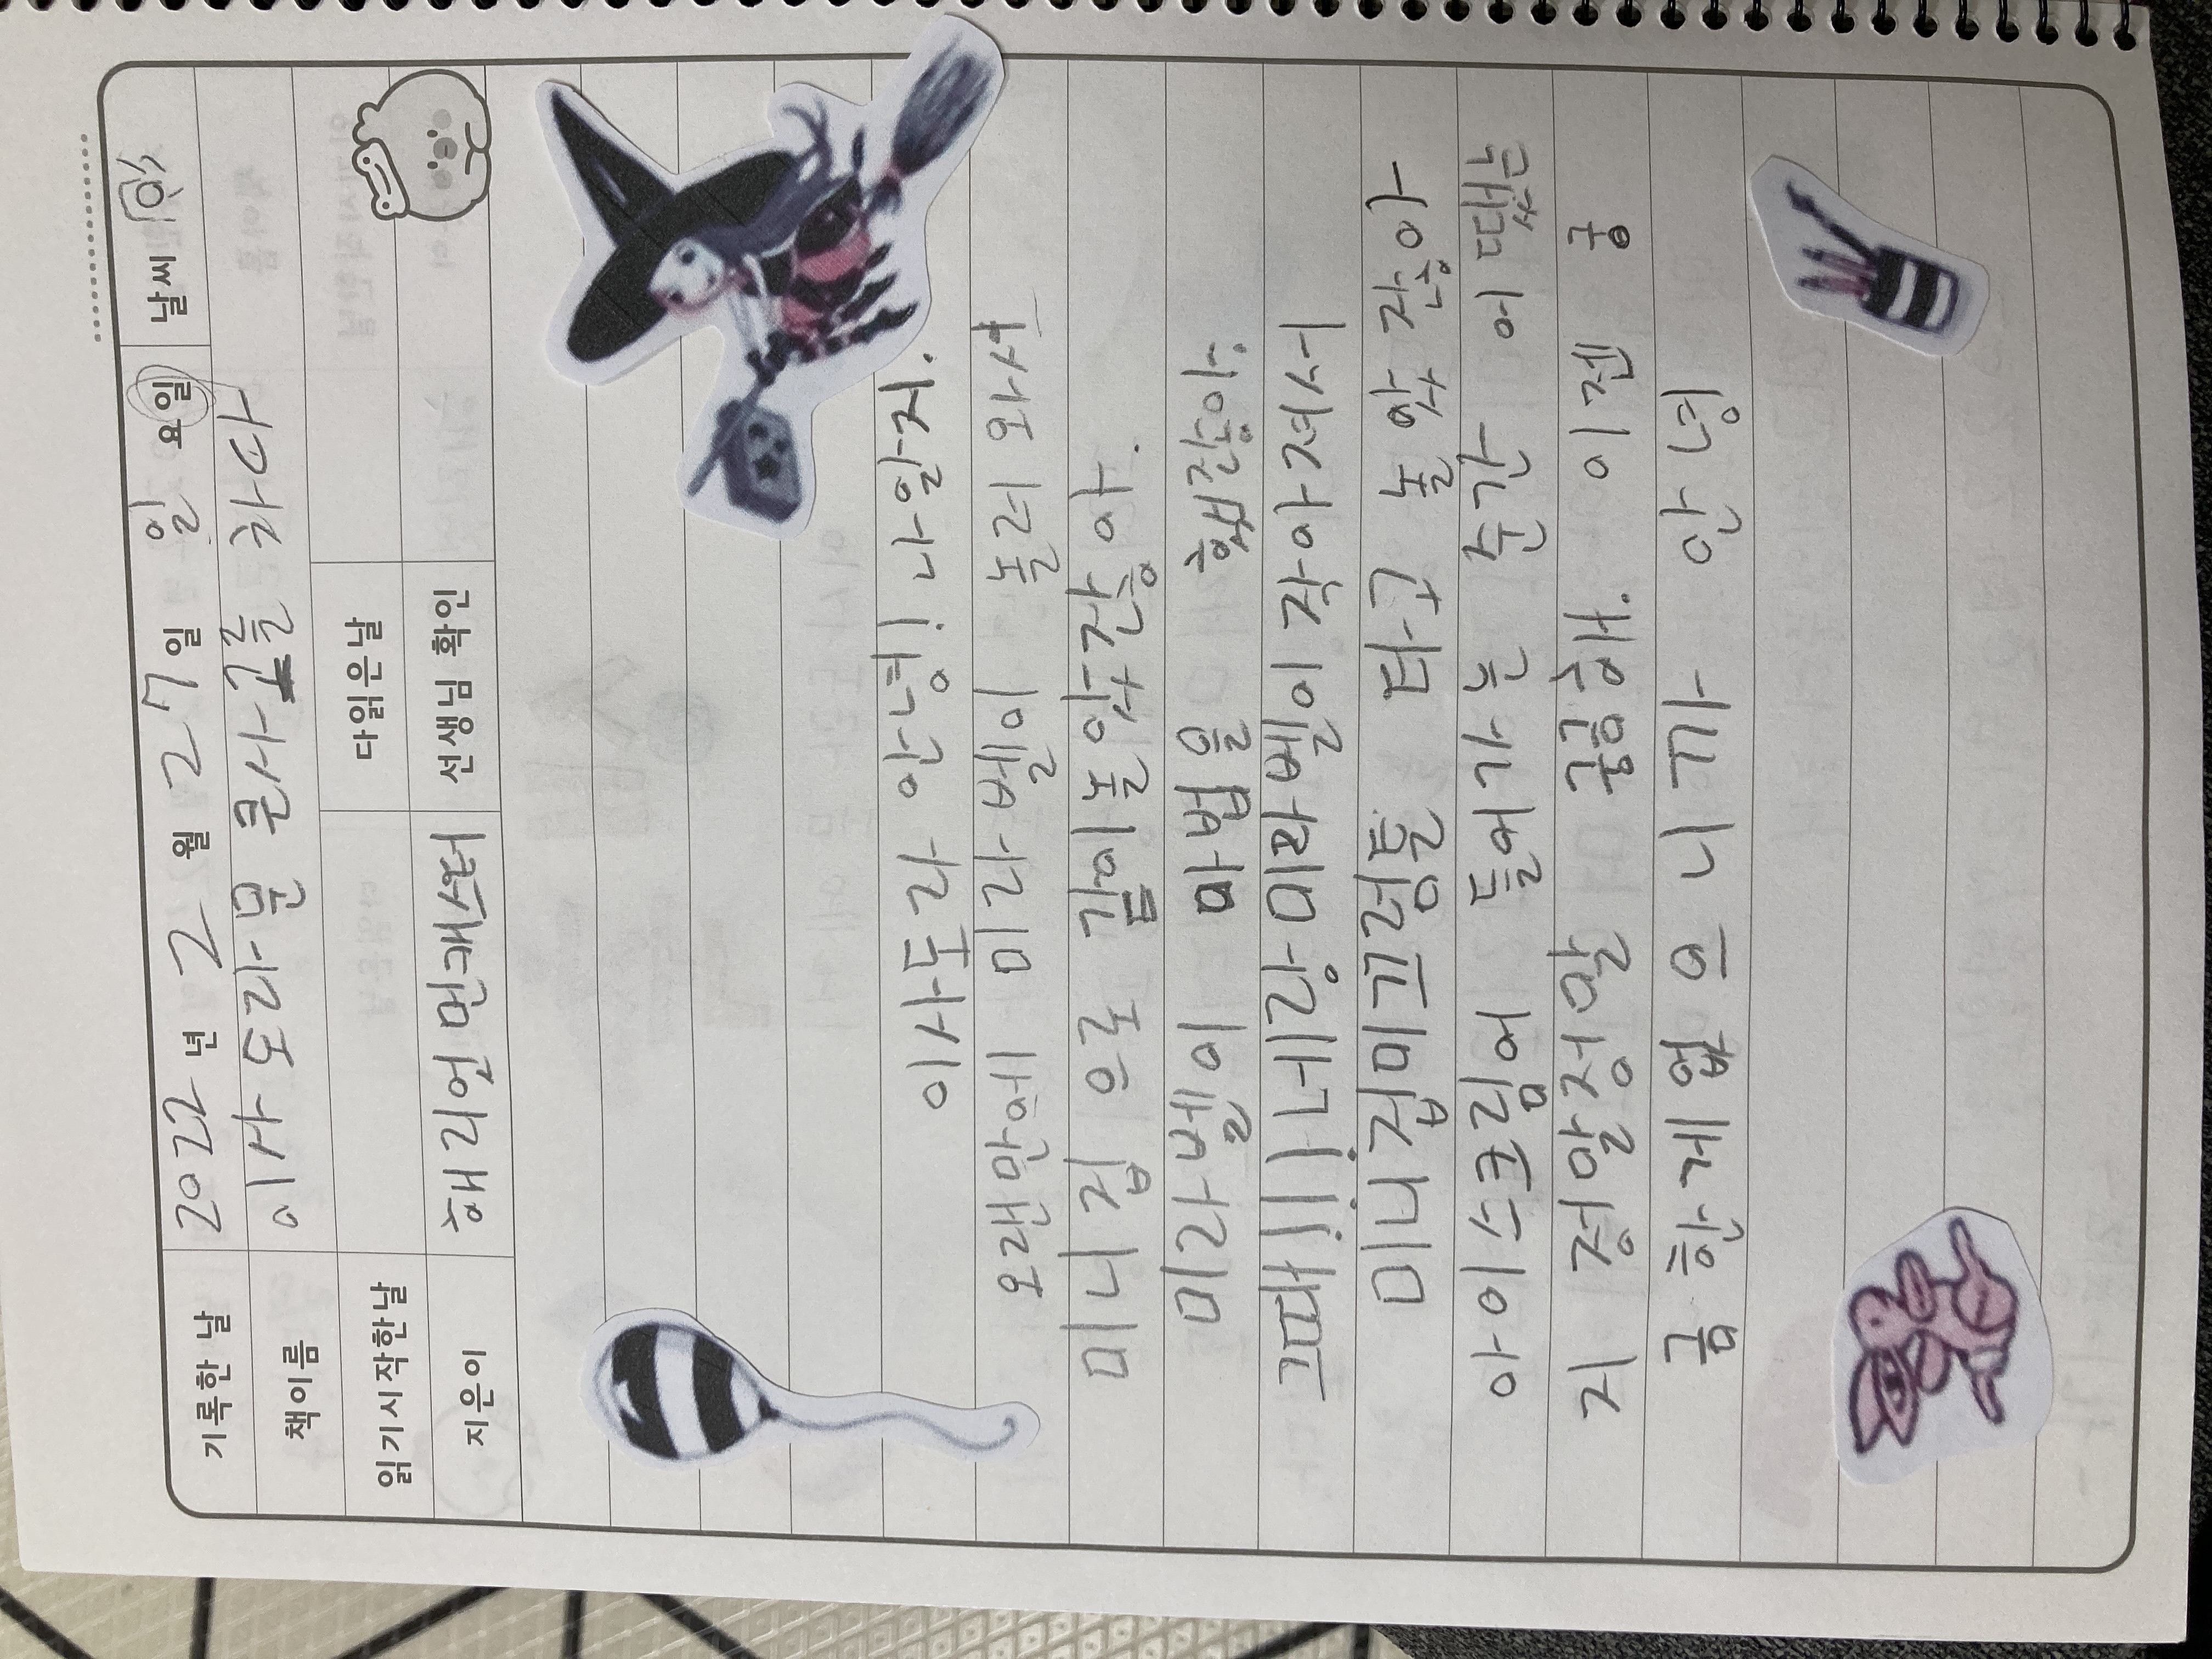 기록한 날 2022 년 2 월 27 일 일 요일 날씨
책이름 이사도라문 큰사고를 차다
읽기시작한날 다읽은날
지은이 해리엇 먼캐스터 선생님 확인
이사도라 안녕! 나알지.
오랜만에 미라벨이 놀러 와서
미니집으로 같이놀았잖아.
미라벨이 마법을 했잖아.
그때!!! 네랑 미라벨이 작아져서
미니집미끄럼틀 타고 놀았잖아
아이스크림에 들어가는 순간 어땠는
지 정말정말 궁금해. 이젠 궁
금한게없으니까 안녕